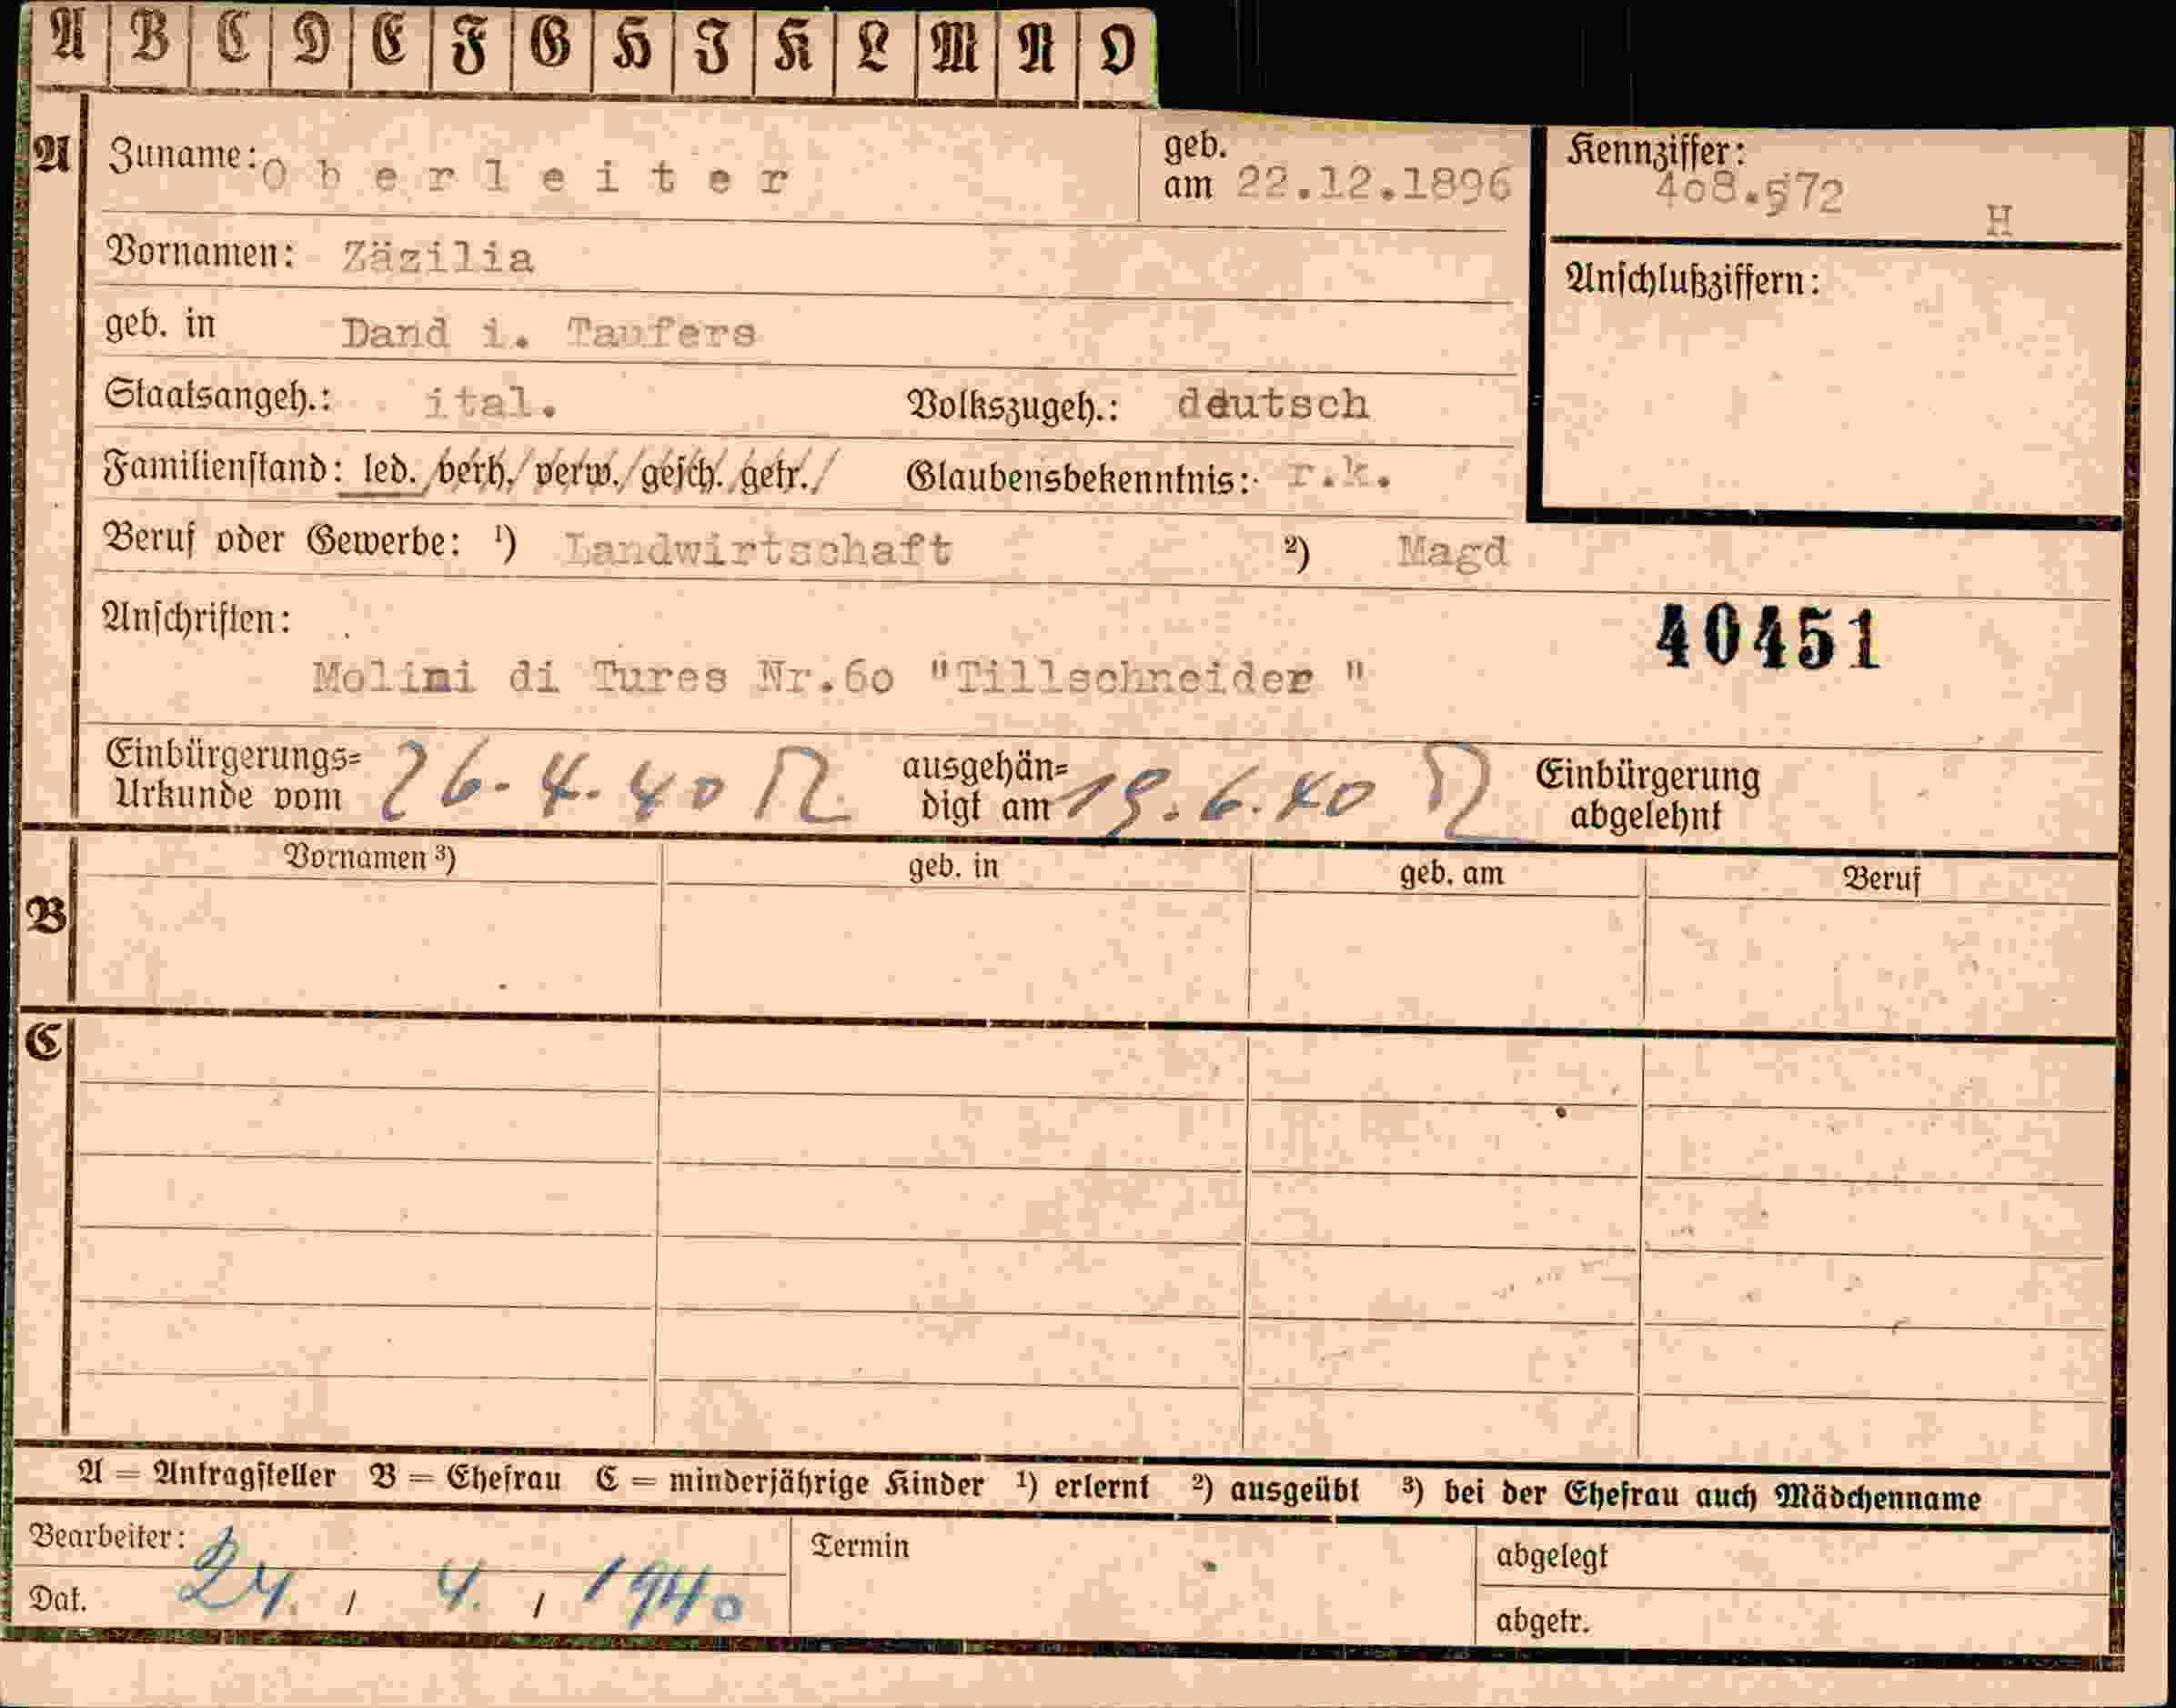 A B C D E F G H J K L M N O
A Zuname: O b e r l e i t e r geb. am 22.12.1896 Kennziffer: 408.572 H
Vornamen: Zäzilia Anschlußziffern:
geb. in Dand i. Taufers
Staatsangeh.: ital. Volkszugeh.: deutsch
Familienstand: led. verh. verw. gesch. getr. Glaubensbekenntnis: r.k.
Beruf oder Gewerbe: ¹) Landwirtschaft ²) Magd
Anschriften: 40451
Molini di Tures Nr.60 "Tillschneider "
Einbürgerungs= ausgehän= Einbürgerung
Urkunde vom 26.4.40 digt am 19.6.40 abgelehnt
B Vornamen ³) geb. in geb. am Beruf
C
A = Antragsteller B = Ehefrau C = minderjährige Kinder ¹) erlernt ²) ausgeübt ³) bei der Ehefrau auch Mädchenname
Bearbeiter: Termin abgelegt
Dat. 24. / 4. / 1940 abgetr.